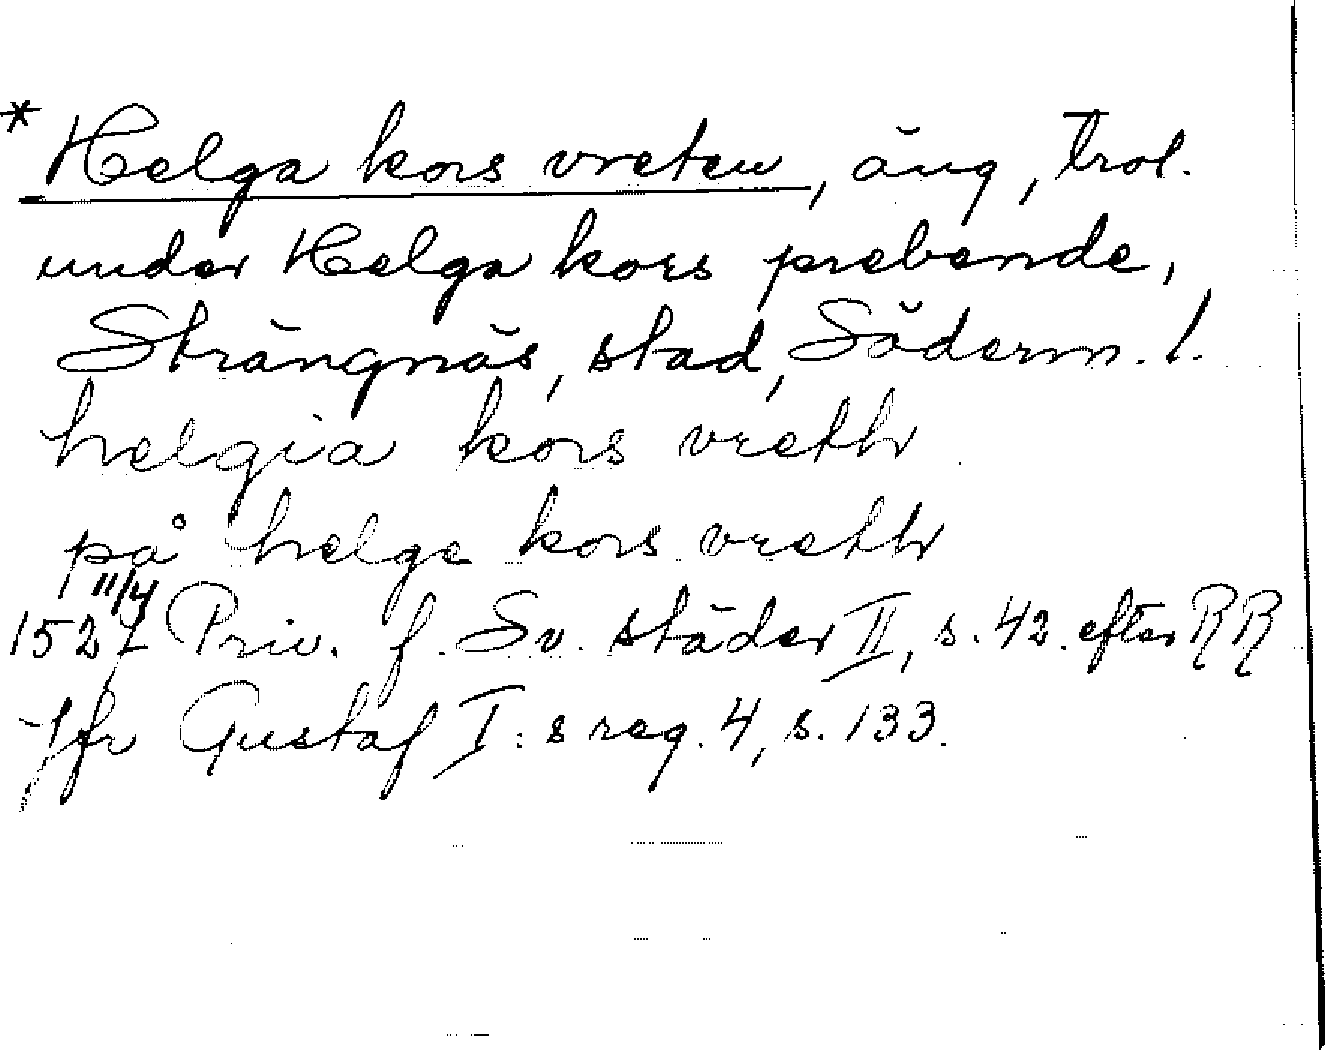 * Helga kors vreten, äng, trol.
under Helga kors prebende,
Strängnäs, stad, Söderm. l.
helgia kors vreth
på helge kors vreth
1527 11/4 Priv. f. Sv. städer II, s. 42. efter RR
Jfr Gustaf I:s reg. 4, s. 133.